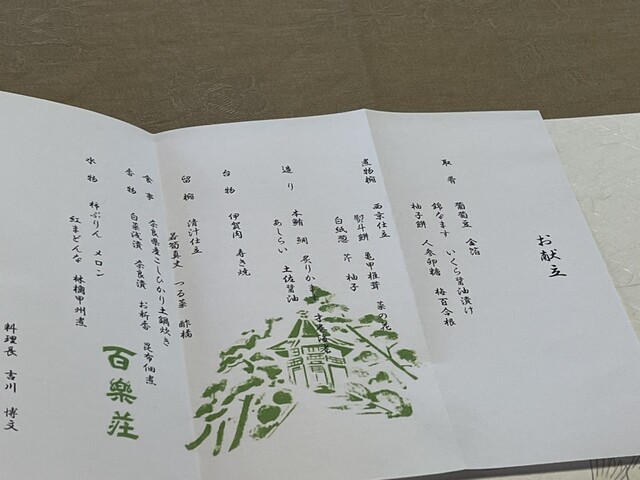 お献立
取肴
葡萄豆 金箔
錦なます いくら醤油漬け
柚子餅 人参卯糖 梅百合根
煮物椀
西京仕立
熨斗餅 亀甲椎茸 菜の花
白紙葱 芥 柚子
造り
本鮪 鯛 炙りかます
あしらい 土佐醤油
台物
伊賀肉 寿き焼
留椀
清汁仕立
若筍真丈 つる菜 酢橘
食事
奈良県産こしひかり土鍋炊き
香物
白菜浅漬 奈良漬 お新香 昆布佃煮
水物
柿ぷりん メロン
紅まどんな 林檎甲州煮
料理長 吉川 博文
百樂荘